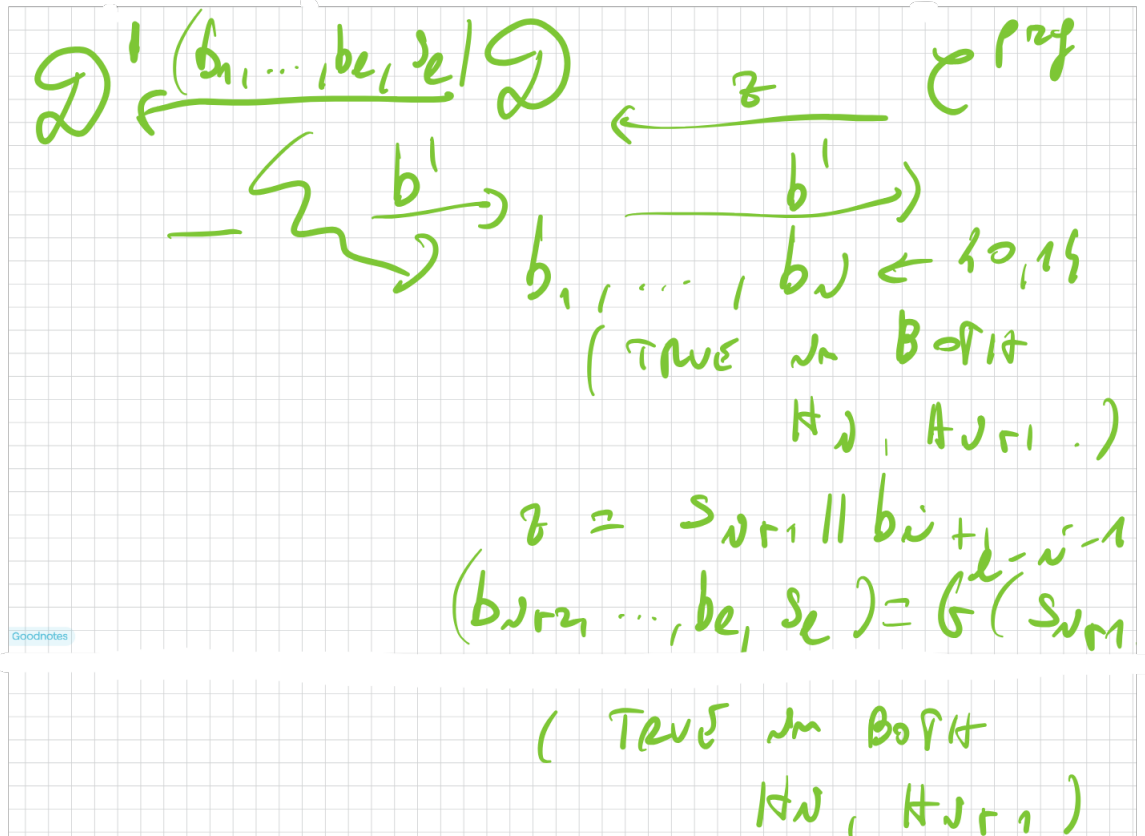 D' (b₁, ..., bℓ, sℓ) D z C^prg
b' b'
b₁, ..., bᵢ ← {0,1}
(TRUE in BOTH
Hᵢ, Hᵢ₊₁.)
z = sᵢ₊₁ || bᵢ₊₁
(bᵢ₊₂, ..., bℓ, sℓ) = G^ℓ⁻ⁱ⁻¹(sᵢ₊₁
Goodnotes
(TRUE in BOTH
Hᵢ, Hᵢ₊₁)